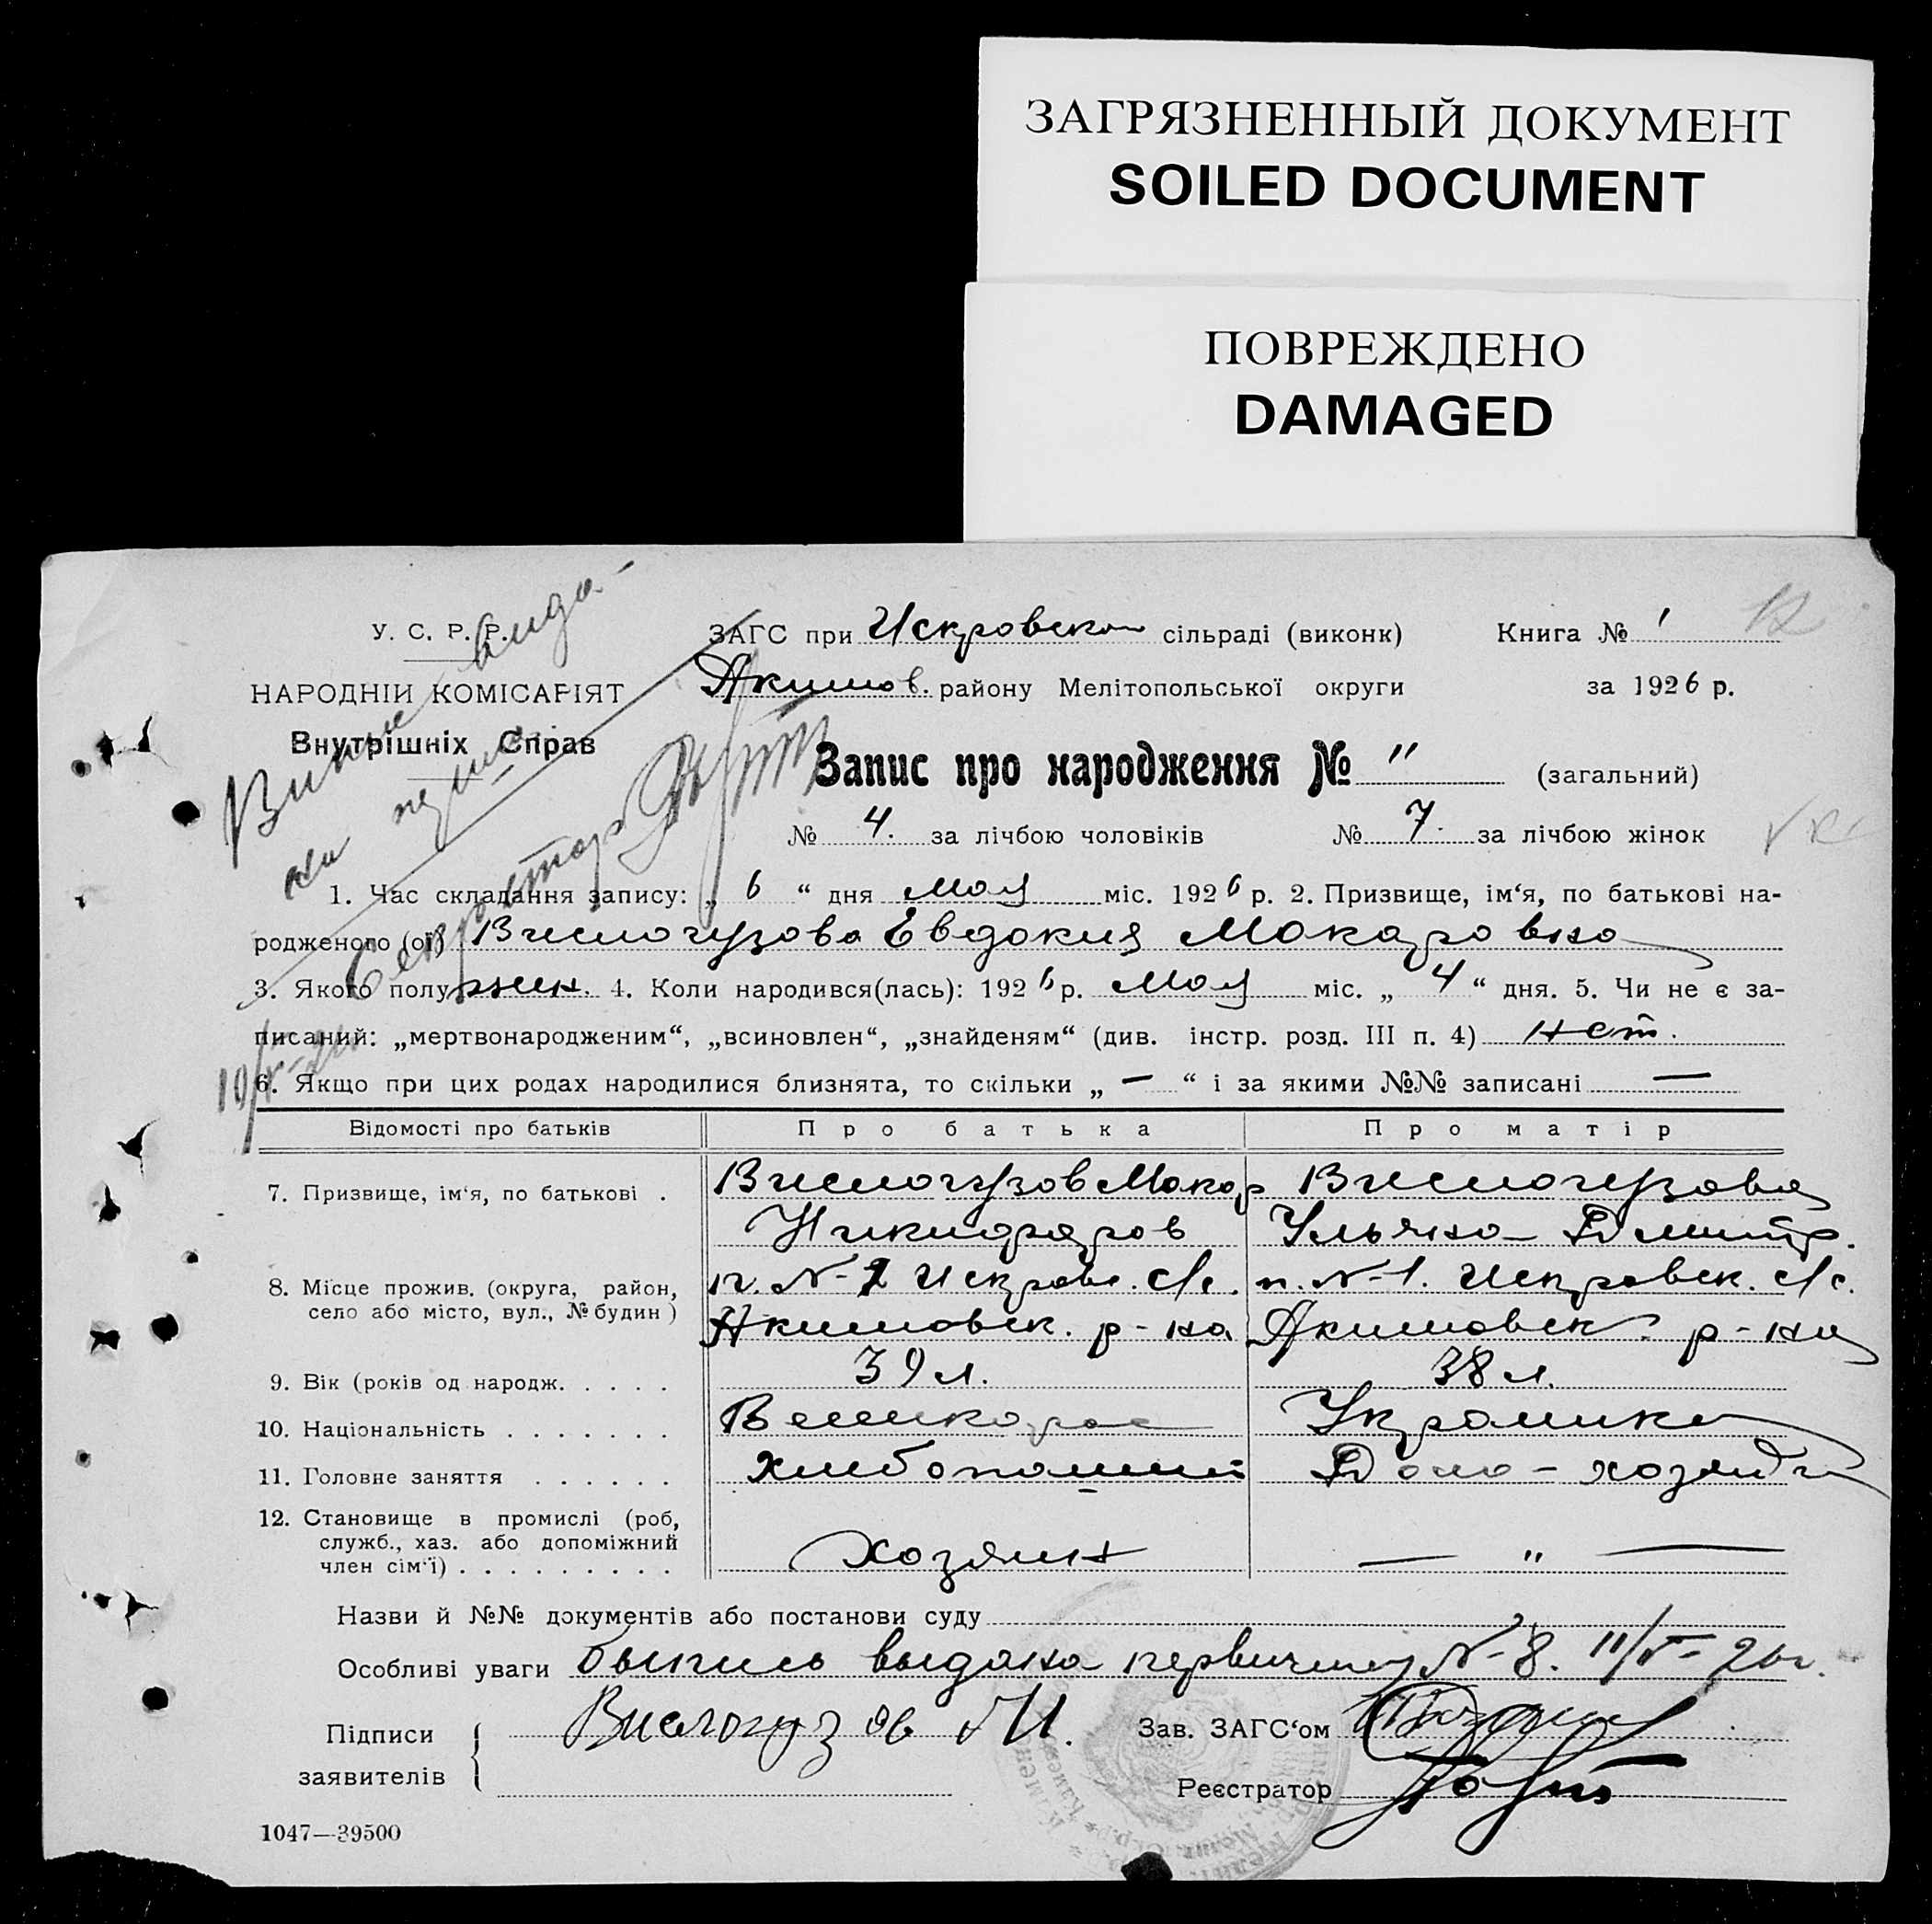 ЗАГРЯЗНЕННЫЙ ДОКУМЕНТ
SOILED DOCUMENT
ПОВРЕЖДЕНО
DAMAGED
У. С. Р. Р.
НАРОДНІЙ КОМІСАРІЯТ
Внутрішніх Справ
ЗАГС при Искровском сільраді (виконк) Книга № 1
Акимов. району Мелітопольської округи за 1926 р.
Запис про народження № 11 (загальний)
№ 4. за лічбою чоловіків № 7. за лічбою жінок
1. Час складання запису: „ 6 “ дня мая міс. 1926 р. 2. Призвище, ім‘я, по батькові на-
родженого (ої) Вислогузова Евдокия Макаровна
3. Якого полу жен. 4. Коли народився(лась): 1926 р. мая міс. „ 4 “ дня. 5. Чи не є за-
писаний: „мертвонародженим“, „всиновлен“, „знайденям“ (див. інстр. розд. III п. 4) нет.
6. Якщо при цих родах народилися близнята, то скільки „ — “ і за якими №№ записані —
Відомості про батьків Про батька Про матір
7. Призвище, ім‘я, по батькові . Вислогузов Макар Вислогузова
Никифоров Ульяна Дмитр.
8. Місце прожив. (округа, район, село або місто, вул., № будин) п. №-1 Искровс. с/с. п. №-1. Искровск. с/с.
Акимовск. р-на Акимовск. р-на
9. Вік (років од народж. . . . . 39 л. 38 л.
10. Національність . . . . . . . Великорос Украинка
11. Головне заняття . . . . . . Хлебопашец Домо-хозяйка
12. Становище в промислі (роб, служб., хаз. або допоміжний член сім‘ї) . . . . . . . . . Хозяин — " —
Назви й №№ документів або постанови суду
Особливі уваги Выпись выдана первичная №-8. 11/V-26г.
Підписи заявителів Вислогузов М. Зав. ЗАГС‘ом
Реєстратор
1047—39500